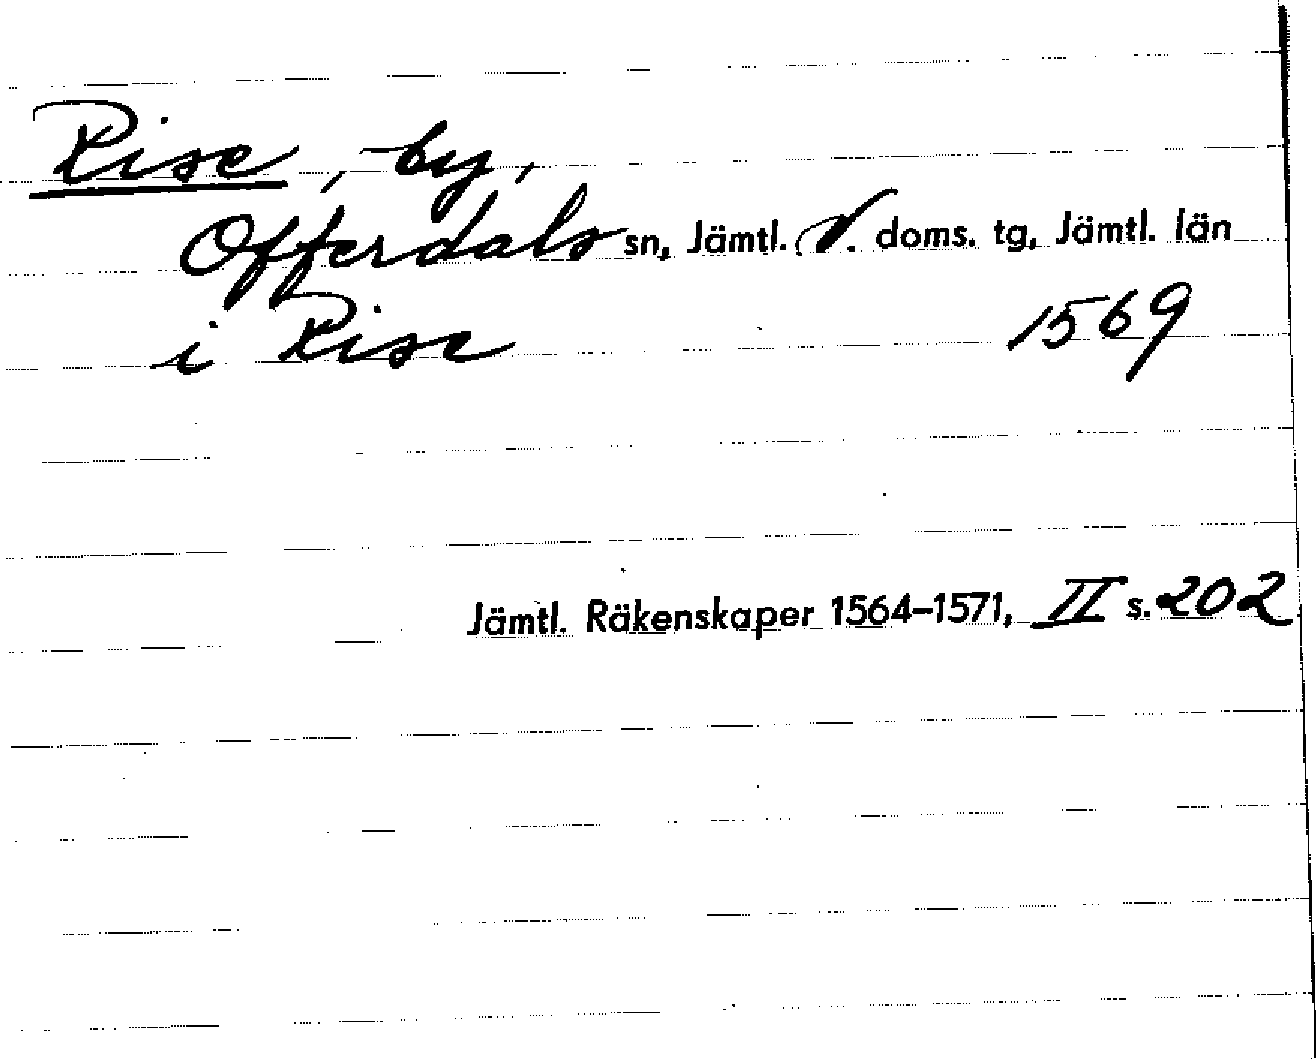 Rise, by,
Offerdals sn, Jämtl. V. doms. tg, Jämtl. län
i Rise 1569
Jämtl. Räkenskaper 1564–1571, II s. 202